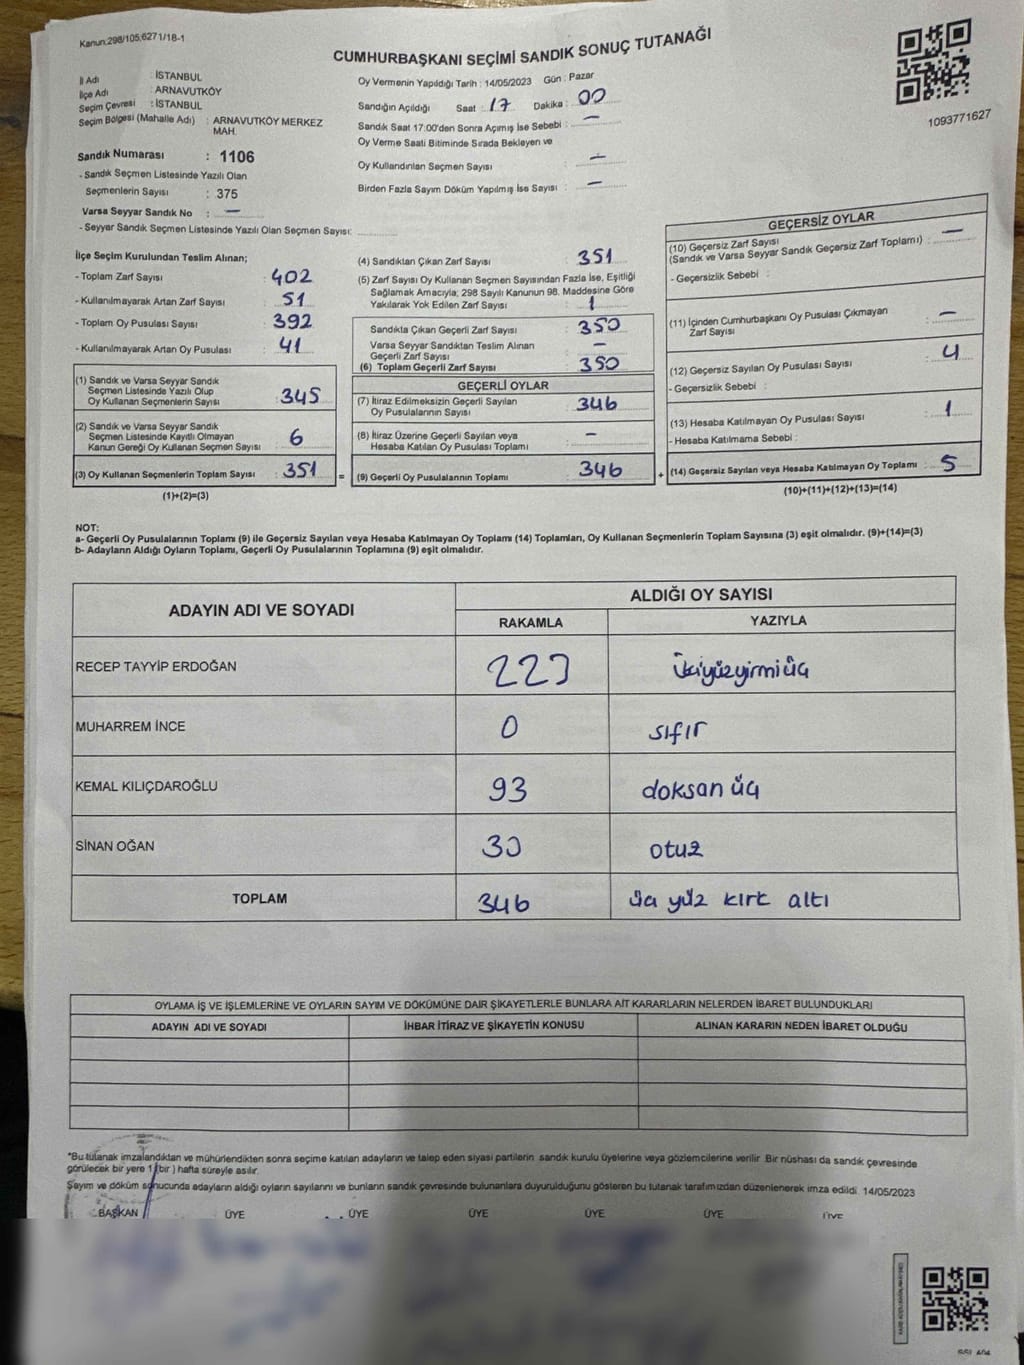 Kanun:298/105;6271/18-1
CUMHURBAŞKANI SEÇİMİ SANDIK SONUÇ TUTANAĞI
1093771627
İl Adı : İSTANBUL
İlçe Adı : ARNAVUTKÖY
Seçim Çevresi : İSTANBUL
Seçim Bölgesi (Mahalle Adı) : ARNAVUTKÖY MERKEZ
MAH.
Sandık Numarası : 1106
- Sandık Seçmen Listesinde Yazılı Olan
Seçmenlerin Sayısı : 375
Varsa Seyyar Sandık No : —
- Seyyar Sandık Seçmen Listesinde Yazılı Olan Seçmen Sayısı:
Oy Vermenin Yapıldığı Tarih : 14/05/2023 Gün : Pazar
Sandığın Açıldığı Saat : 17 Dakika : 00
Sandık Saat 17:00'den Sonra Açımış İse Sebebi : —
Oy Verme Saati Bitiminde Sırada Bekleyen ve
Oy Kullandırılan Seçmen Sayısı : —
Birden Fazla Sayım Döküm Yapılmış İse Sayısı : —
İlçe Seçim Kurulundan Teslim Alınan;
- Toplam Zarf Sayısı : 402
- Kullanılmayarak Artan Zarf Sayısı : 51
- Toplam Oy Pusulası Sayısı : 392
- Kullanılmayarak Artan Oy Pusulası : 41
(1) Sandık ve Varsa Seyyar Sandık
Seçmen Listesinde Yazılı Olup
Oy Kullanan Seçmenlerin Sayısı : 345
(2) Sandık ve Varsa Seyyar Sandık
Seçmen Listesinde Kayıtlı Olmayan
Kanun Gereği Oy Kullanan Seçmen Sayısı : 6
(3) Oy Kullanan Seçmenlerin Toplam Sayısı : 351
(1)+(2)=(3)
(4) Sandıktan Çıkan Zarf Sayısı : 351
(5) Zarf Sayısı Oy Kullanan Seçmen Sayısından Fazla İse, Eşitliği
Sağlamak Amacıyla; 298 Sayılı Kanunun 98. Maddesine Göre
Yakılarak Yok Edilen Zarf Sayısı : 1
Sandıkta Çıkan Geçerli Zarf Sayısı : 350
Varsa Seyyar Sandıktan Teslim Alınan
Geçerli Zarf Sayısı : —
(6) Toplam Geçerli Zarf Sayısı : 350
GEÇERLİ OYLAR
(7) İtiraz Edilmeksizin Geçerli Sayılan
Oy Pusulalarının Sayısı : 346
(8) İtiraz Üzerine Geçerli Sayılan veya
Hesaba Katılan Oy Pusulası Toplamı : —
= (9) Geçerli Oy Pusulalarının Toplamı : 346
GEÇERSİZ OYLAR
(10) Geçersiz Zarf Sayısı
(Sandık ve Varsa Seyyar Sandık Geçersiz Zarf Toplamı) : —
- Geçersizlik Sebebi :
(11) İçinden Cumhurbaşkanı Oy Pusulası Çıkmayan
Zarf Sayısı : —
(12) Geçersiz Sayılan Oy Pusulası Sayısı : 4
- Geçersizlik Sebebi :
(13) Hesaba Katılmayan Oy Pusulası Sayısı : 1
- Hesaba Katılmama Sebebi :
+ (14) Geçersiz Sayılan veya Hesaba Katılmayan Oy Toplamı : 5
(10)+(11)+(12)+(13)=(14)
NOT:
a- Geçerli Oy Pusulalarının Toplamı (9) ile Geçersiz Sayılan veya Hesaba Katılmayan Oy Toplamı (14) Toplamları, Oy Kullanan Seçmenlerin Toplam Sayısına (3) eşit olmalıdır. (9)+(14)=(3)
b- Adayların Aldığı Oyların Toplamı, Geçerli Oy Pusulalarının Toplamına (9) eşit olmalıdır.
ADAYIN ADI VE SOYADI ALDIĞI OY SAYISI
RAKAMLA YAZIYLA
RECEP TAYYİP ERDOĞAN 223 ikiyüzyirmiüç
MUHARREM İNCE 0 sıfır
KEMAL KILIÇDAROĞLU 93 doksan üç
SİNAN OĞAN 30 otuz
TOPLAM 346 üç yüz kırk altı
OYLAMA İŞ VE İŞLEMLERİNE VE OYLARIN SAYIM VE DÖKÜMÜNE DAİR ŞİKAYETLERLE BUNLARA AİT KARARLARIN NELERDEN İBARET BULUNDUKLARI
ADAYIN ADI VE SOYADI İHBAR İTİRAZ VE ŞİKAYETİN KONUSU ALINAN KARARIN NEDEN İBARET OLDUĞU
*Bu tutanak imzalandıktan ve mühürlendikten sonra seçime katılan adayların ve talep eden siyasi partilerin sandık kurulu üyelerine veya gözlemcilerine verilir. Bir nüshası da sandık çevresinde
görülecek bir yere 1 (bir) hafta süreyle asılır.
Sayım ve döküm sonucunda adayların aldığı oyların sayılarını ve bunların sandık çevresinde bulunanlara duyurulduğunu gösteren bu tutanak tarafımızdan düzenlenerek imza edildi. 14/05/2023
BAŞKAN ÜYE ÜYE ÜYE ÜYE ÜYE ÜYE